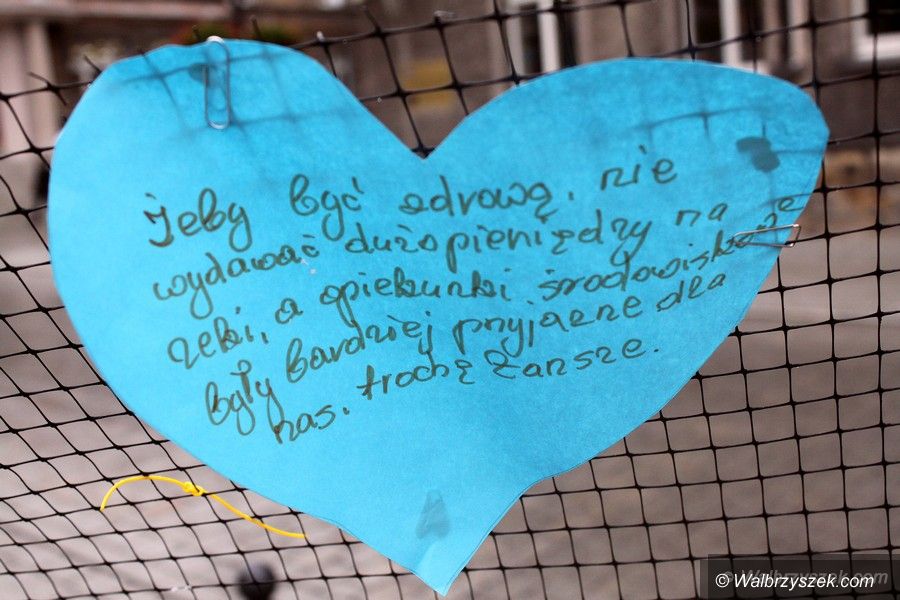 żeby być zdrową. nie
wydawać dużo pieniędzy na
leki, a opiekunki środowiskowe
były bardziej przyjazne dla
nas. trochę tańsze.
© Walbrzyszek.com